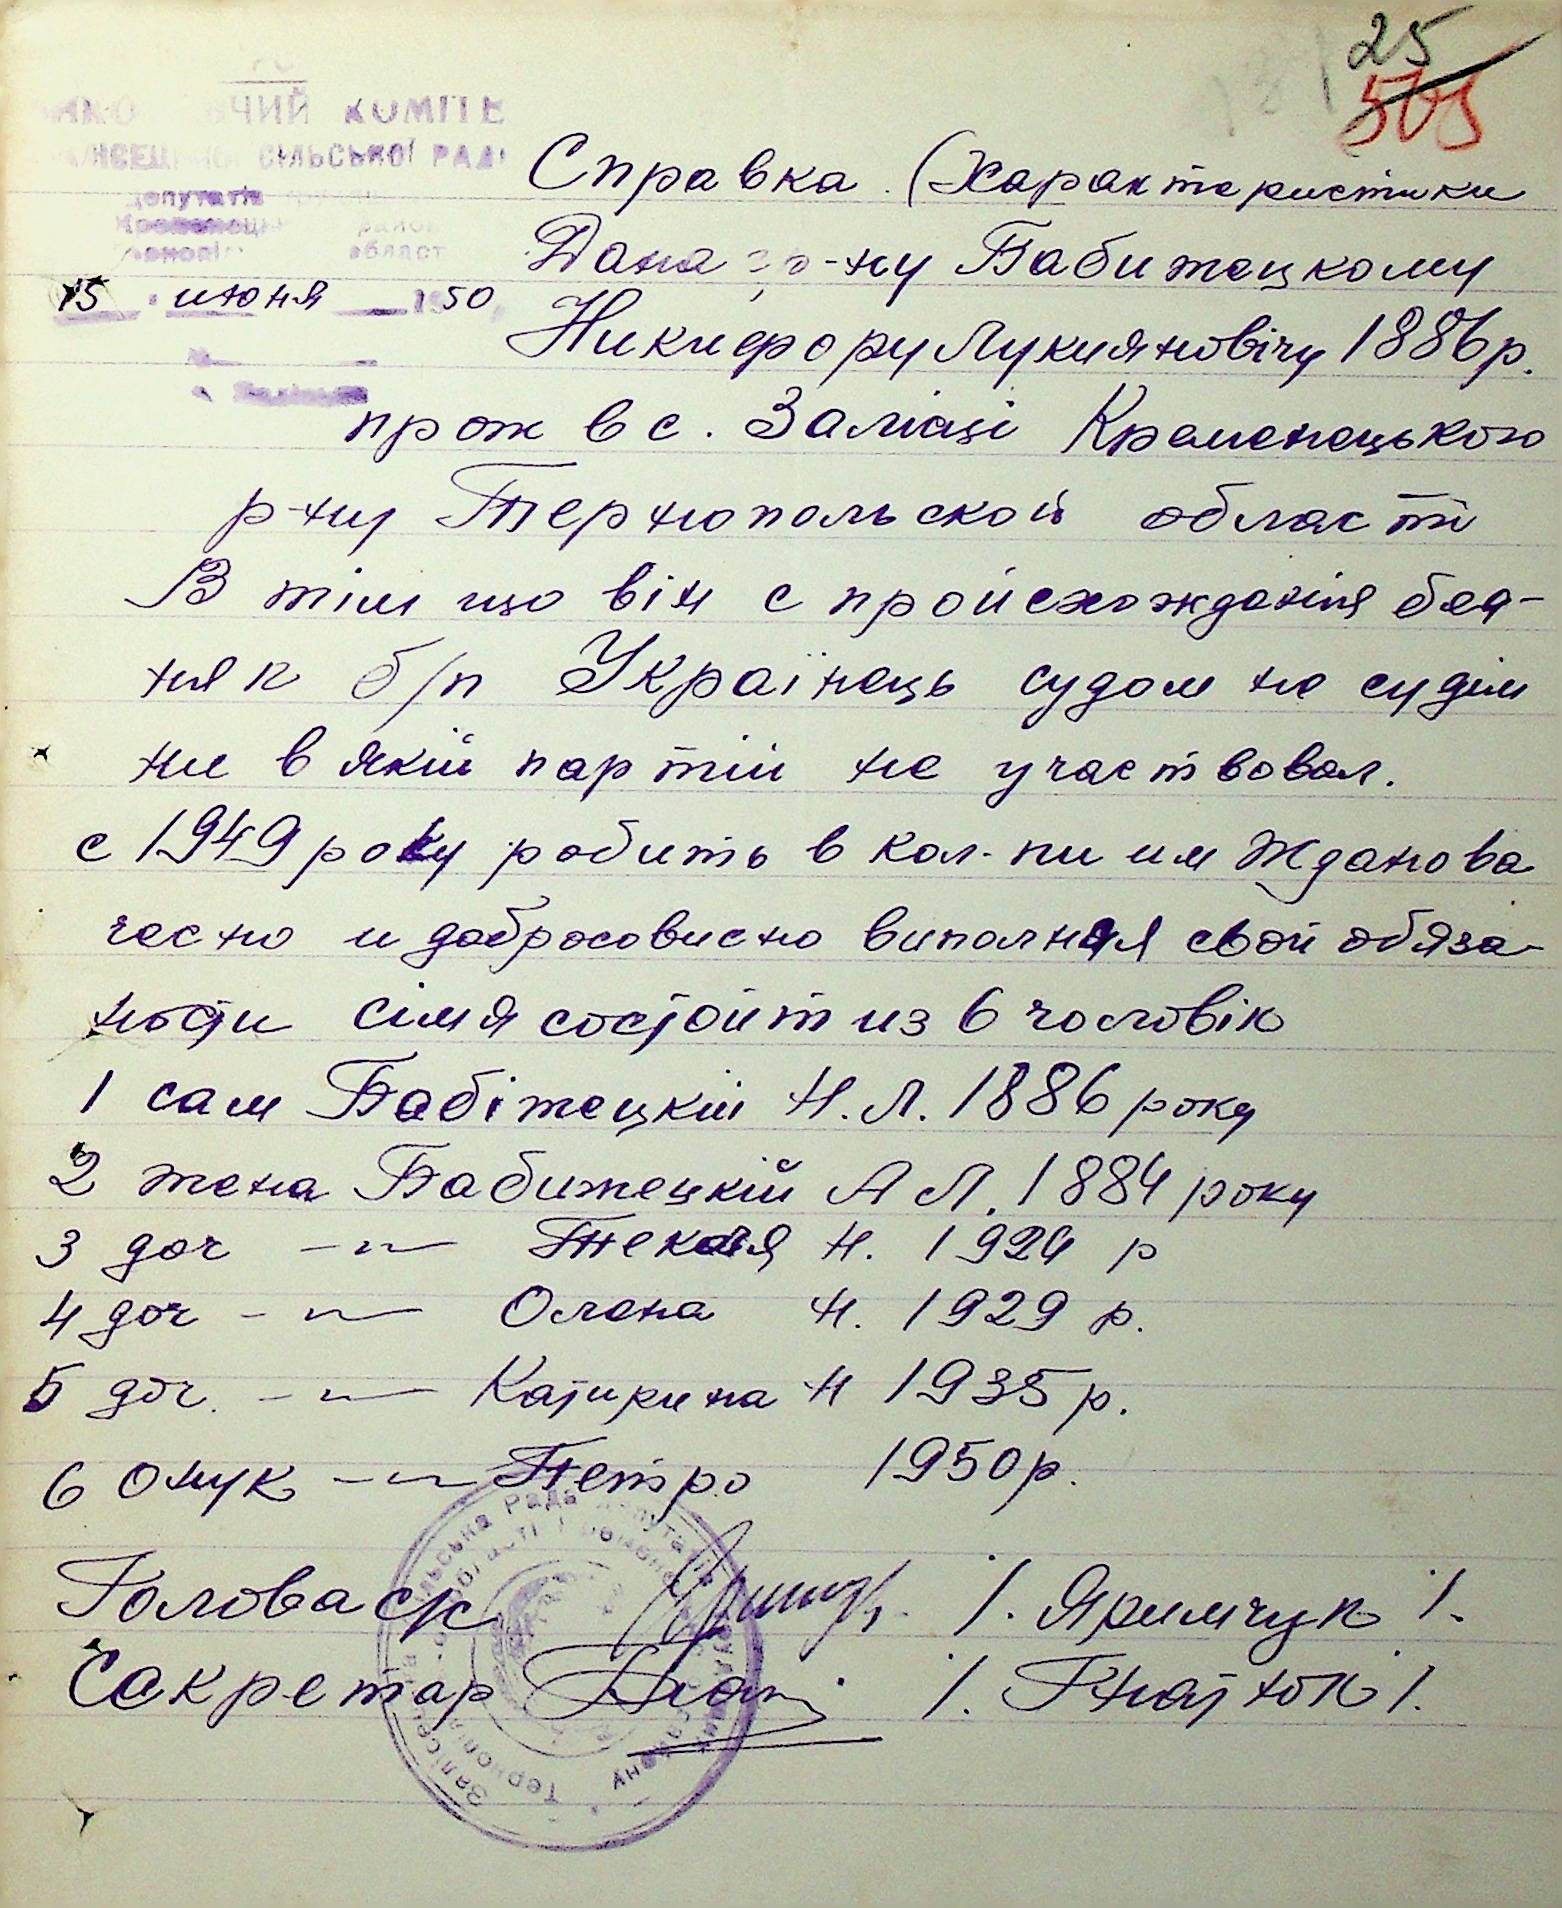 25
505
КОМІТЕ
СІЛЬСЬКОЇ РАДИ
депутатів
област
15 июня 1950
Справка. (Характеристики
Дана гр-ну Бабижецкому
Никифору Лукияновічу 1886 р.
прож в с. Залісці Кременецького
р-ну Тернопольской області
В тім що він с происхожденія бед-
няк б/п Українець судом не судім
ни в якій партіи не участвовал.
с 1949 року робить в кол-пи им Жданова
чесно и добросовисно виполняя свои обяза-
ности сімя состоит из 6 чоловік
1 сам Бабіжецкій Н. Л. 1886 року
2 жена Бабижецкій А Л. 1884 року
3 доч -"- Текля Н. 1924 р
4 доч -"- Олена Н. 1929 р.
5 доч. -"- Катирина Н 1935 р.
6 Онук -"- Петро 1950 р.
Голова с/с /. Яримчук /.
Секретар /. Гнатюк /.